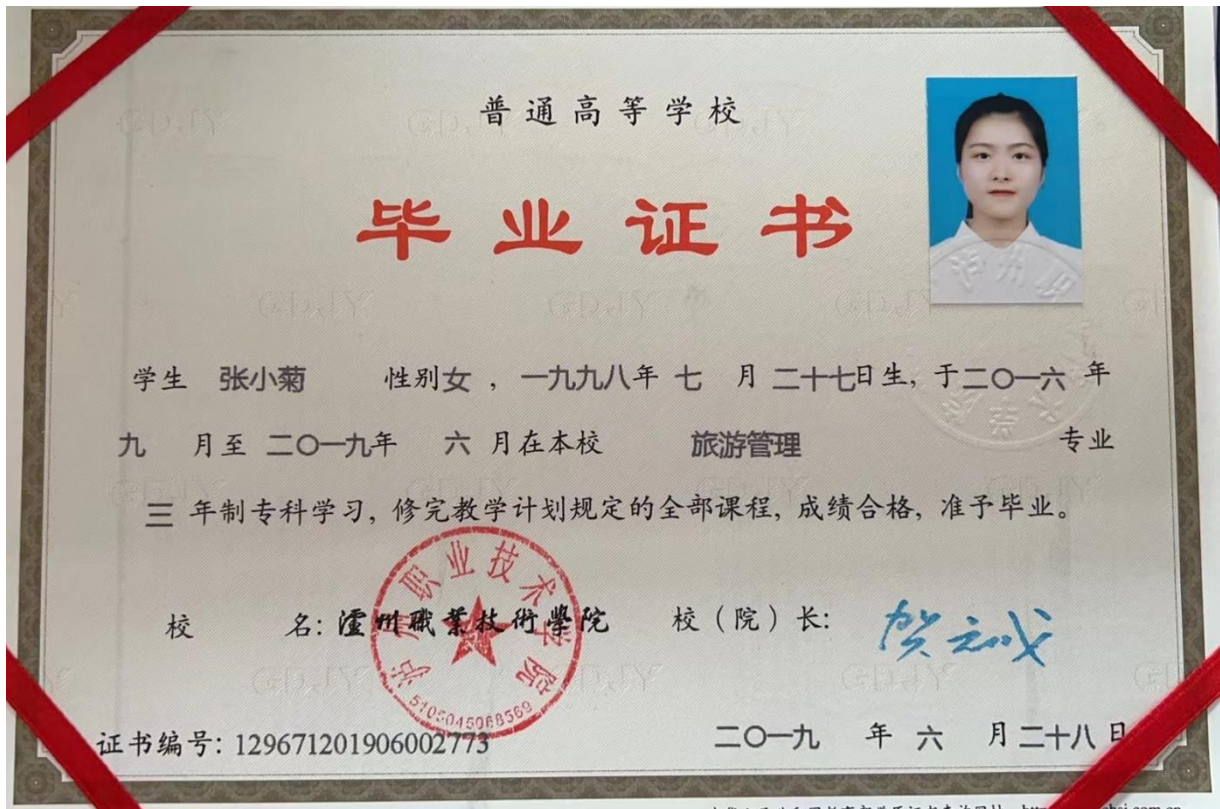 普通高等学校
毕业证书
学生 张小菊 性别女，一九九八年 七 月 二十七日生，于二〇一六 年
九 月至 二〇一九年 六 月在本校 旅游管理 专业
三 年制专科学习，修完教学计划规定的全部课程，成绩合格，准予毕业。
校 名：瀘州職業技術學院 校（院）长：贺元成
泸州职业技术学院
证书编号：129671201906002773 二〇一九 年 六 月 二十八 日